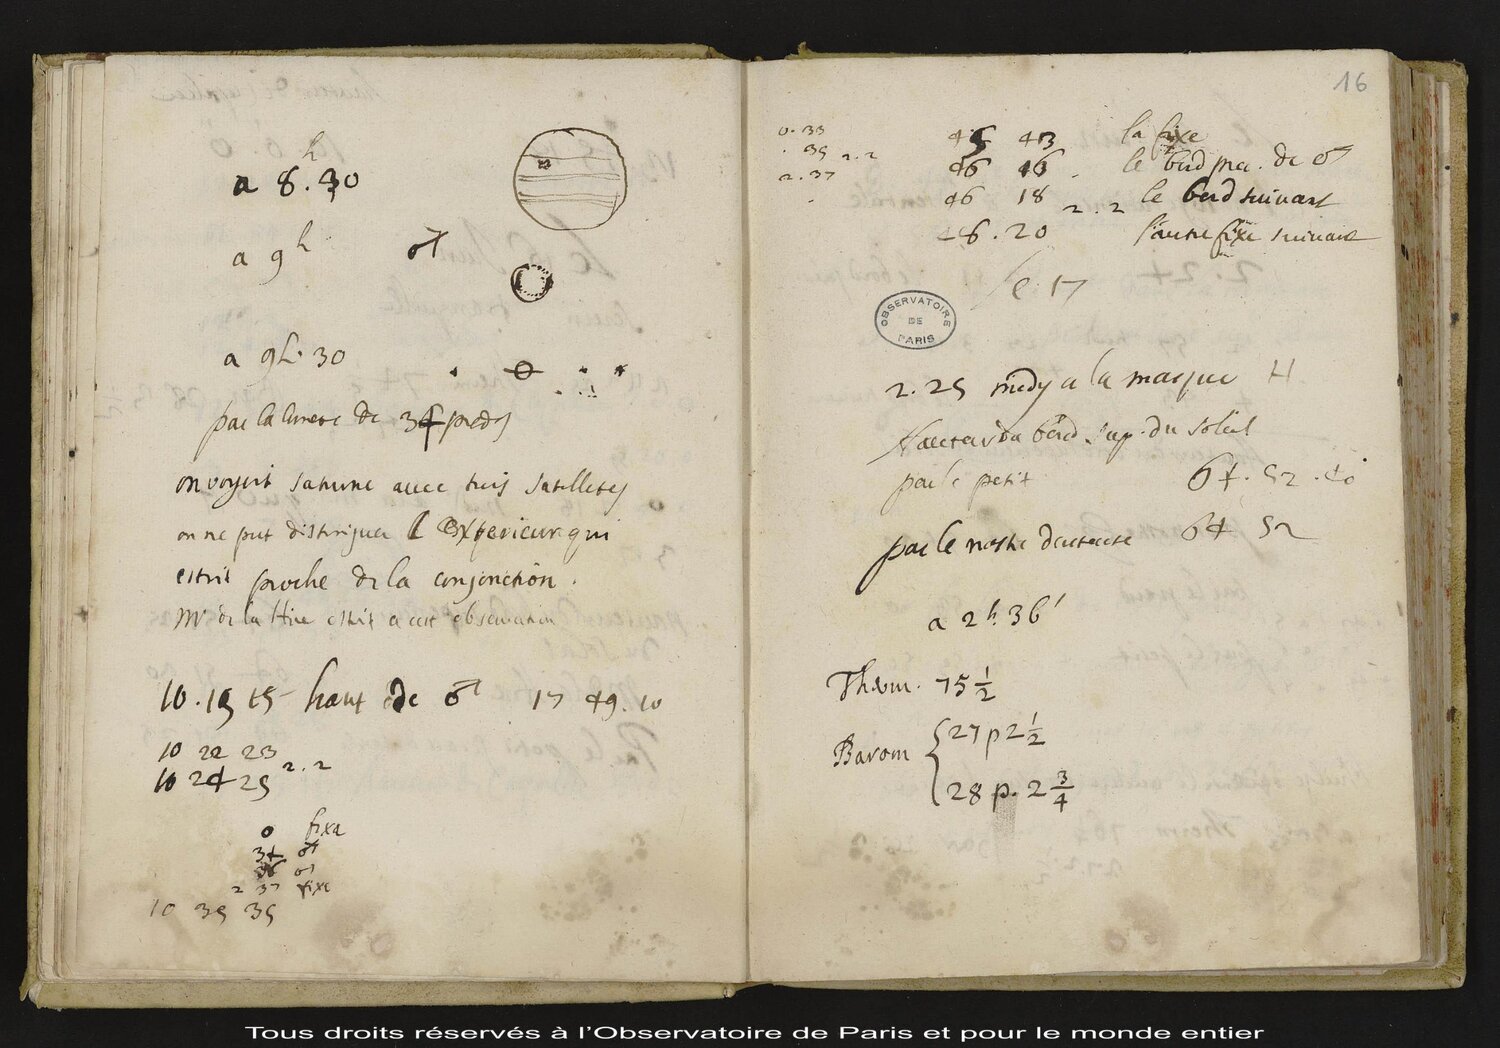 a 8.h 30
a 9h ♂
a 9h. 30
par la lunete de 34 pieds
on voyoit saturne avec trois satellites
on ne put distinguer l'exterieur qui
estoit proche de la conjonction.
Mr de la Hire estoit a cete observation
10. 15 15 haut de ♂ 17 49. 10
10 22 23
10 24 25 2. 2
0 fixe
34 ♂
36 ♂
2 37 fixe
10 35 35
16
0. 33 45 43 la fixe
. 35 2. 2 46 16 . le bord prec. de ♂
2. 37 46 18 2. 2 le bord suivant
48. 20 l'autre fixe suivante
le 17
OBSERVATOIRE
DE
PARIS
2. 25 midy a la marque H
Hauteur du bord sup. du soleil
par le petit 64. 52. 40
par le nostre 64 52
a 2h. 36'
Therm. 75 1/2
Barom { 27 p 2 1/2
28 p. 2 3/4
Tous droits réservés à l'Observatoire de Paris et pour le monde entier